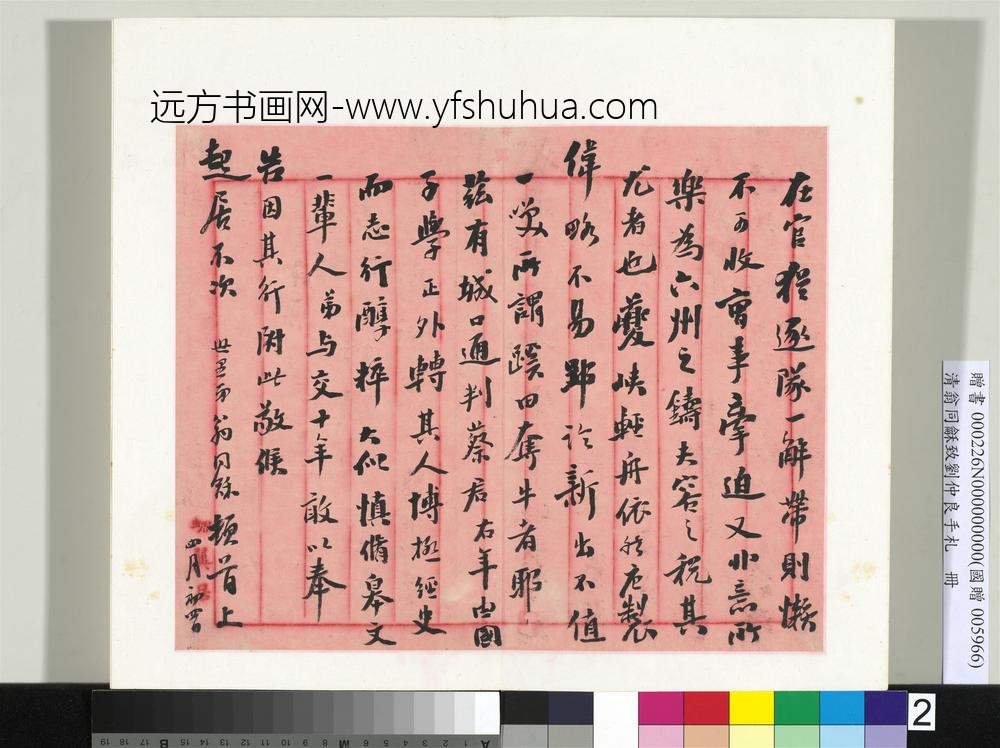 远方书画网-www.yfshuhua.com
在官猶逐隊一解帶則懶
不可收曹事牽迫又非意所
樂為六州之鑄夫容之税其
尤者也夔峽輕舟依然危製
偉略不易鄙論新出不值
一噱所謂蹊田奪牛者耶
茲有城口通判蔡君右年由國
子學正外轉其人博極經史
而志行醇粹大似慎脩皋文
一輩人弟与交十年敢以奉
告因其行附此敬候
起居不次
翁同龢頓首上
四月初四日
贈書 000226N000000000(國贈 005966)
清翁同龢致劉仲良手札 冊
2
19 18 17 16 15 B 14 13 12 11 10 9 8 M 7 6 5 4 3 2 1 A